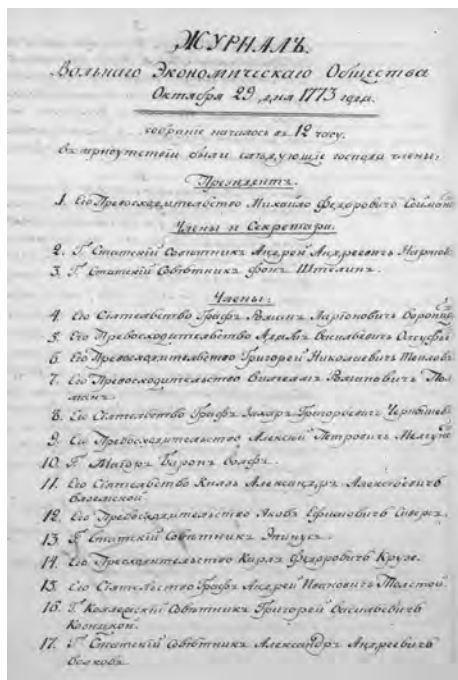 ЖУРНАЛЪ.
Вольнаго Экономическаго Общества
Октября 29 дня 1773 года.
собраніе началось въ 12 часу.
въ присутствіи были слѣдующіе господа члены:
Президентъ.
1. Его Превосходительство Михайло Федоровичь Соймановъ
Члены и Секретари.
2. Г. Статскій Совѣтникъ Андрей Андреевичь Нартовъ
3. Г. Статскій Совѣтникъ фонъ Штелинъ.
Члены:
4. Его Сіятельство Графъ Романъ Ларіоновичь Воронцовъ
5. Его Превосходительство Адамъ Васильевичь Олсуфьевъ
6. Его Превосходительство Григорей Николаевичь Тепловъ
7. Его Превосходительство Вилгелмъ Романовичь Пол
манъ.
8. Его Сіятельство Графъ Захаръ Григорьевичь Чернышевъ
9. Его Превосходительство Алексѣй Петровичь Мелгуновъ
10. Г. Маіоръ Баронъ Волфъ.
11. Его Сіятельство Князь Александръ Алексѣевичь
Вяземской.
12. Его Превосходительство Яковъ Ефимовичь Сиверсъ.
13. Г. Статскій Совѣтникъ Эпинусъ.
14. Его Превосходительство Карлъ Федоровичь Крузе.
15. Его Сіятельство Графъ Андрей Ивановичь Толстой.
16. Г. Коллежскій Совѣтникъ Григорей Васильевичь
Козицкой.
17. Г. Статскій Совѣтникъ Александръ Андреевичь
Волковъ.